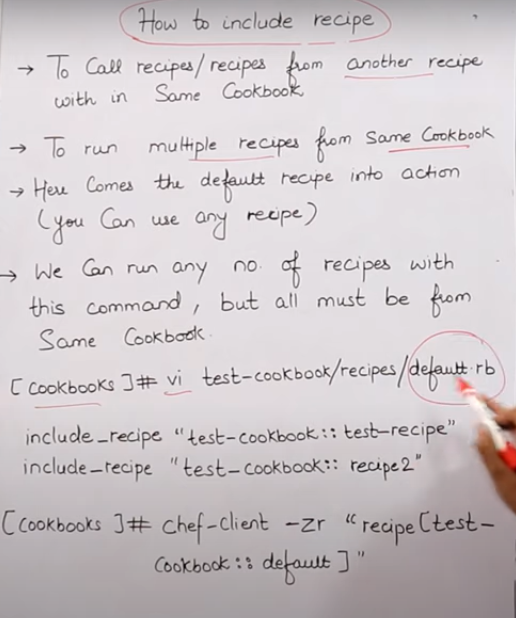 How to include recipe
→ To Call recipes/recipes from another recipe
with in Same Cookbook
→ To run multiple recipes from Same Cookbook
→ Here Comes the default recipe into action
(you Can use any recipe)
→ We Can run any no. of recipes with
this command, but all must be from
Same Cookbook.
[Cookbooks]# vi test-cookbook/recipes/default.rb
include_recipe "test-cookbook::test-recipe"
include_recipe "test-cookbook::recipe2"
[Cookbooks]# chef-client -zr "recipe[test-
Cookbook::default]"